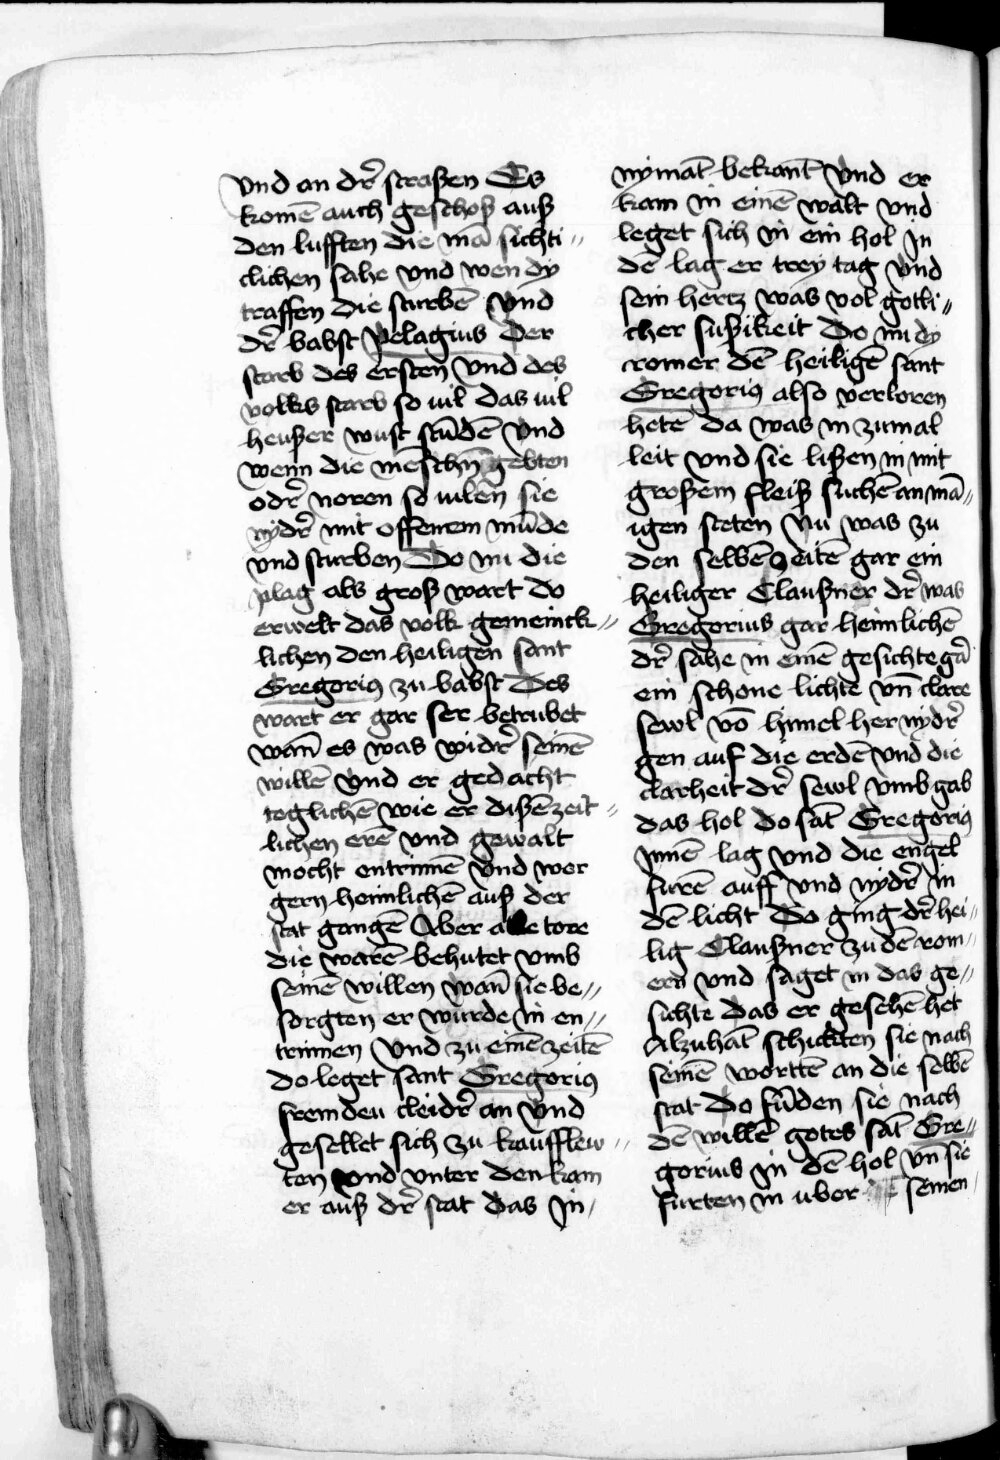 vnd an dr̄ straßen Es
komē auch geschoß auß
den lufften die mā sichti //
clichen sahe vnd wen dy
traffen die sturbē vnd
dr̄ babst Pelagius der
starb des ersten vnd des
volks starb so uil das uil
heußer wust stūdē vnd
wenn die mēschn̄ gebten
odr̄ noren so uilen sie
nydr̄ mit offenem mūde
vnd sturben Do nu die
plag als groß wart do
erwelt das volk gemeinck //
lichen den heiligen sant
Gregoriꝰ zu babst Des
wart er gar ser betrubet
wan̄ es was widr̄ seinē
willē vnd er gedacht
teglichē wie er dißē zeit //
lichen erē vnd gewalt
mocht entrinnē vnd wer
gern heimlichē auß der
stat gangē Aber alle tore
die warē behutet vmb
seinē willen wan̄ sie be //
sorgten er wurde in en //
trinnen vnd zu einē zeitē
do leget sant Gregoriꝰ
fremden cleidr̄ an vnd
gesellet sich zu kaufflew //
ten vnd vnter den kam
er auß dr̄ stat das in /
nymāt bekant vnd er
kam in einē walt vnd
leget sich in ein hol in
dē lag er trey tag vnd
sein hertz was vol gotli //
cher sußikeit Do nu dy
romer dē heiligē sant
Gregoriꝰ also verloren
hetē da was in zumal
leit vnd sie lißen in mit
großem fleiß suchē an mā //
igen steten Nu was zu
den selbē zeitē gar ein
heiliger Claußner dr̄ was
Gregorius gar heimlichē
dr̄ sahe in einē gesichte gā
ein schone lichte vn̄ clare
sewl vō himel her nydr̄
gen auf die erdē vnd die
clarheit dr̄ sewl vmbgab
das hol do sāt Gregoriꝰ
ynnē lag vnd die engel
furē auff vnd nydr̄ in
dē licht Do ging dr̄ hei //
lig Claußner zu dē rom //
ern vnd saget in das ge //
sichte das er gesehē het
Alzuhāt schickten sie nach
seinē wortten an die selbē
stat Do fūden sie nach
dē willē gotes sāt Gre //
gorius in dē hol vn̄ sie
furten in uber seinen